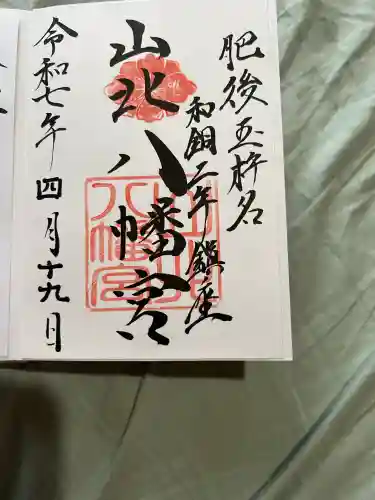 肥後玉杵名
和銅二年鎮座
山北八幡宮
令和七年四月十九日
山北八幡宮